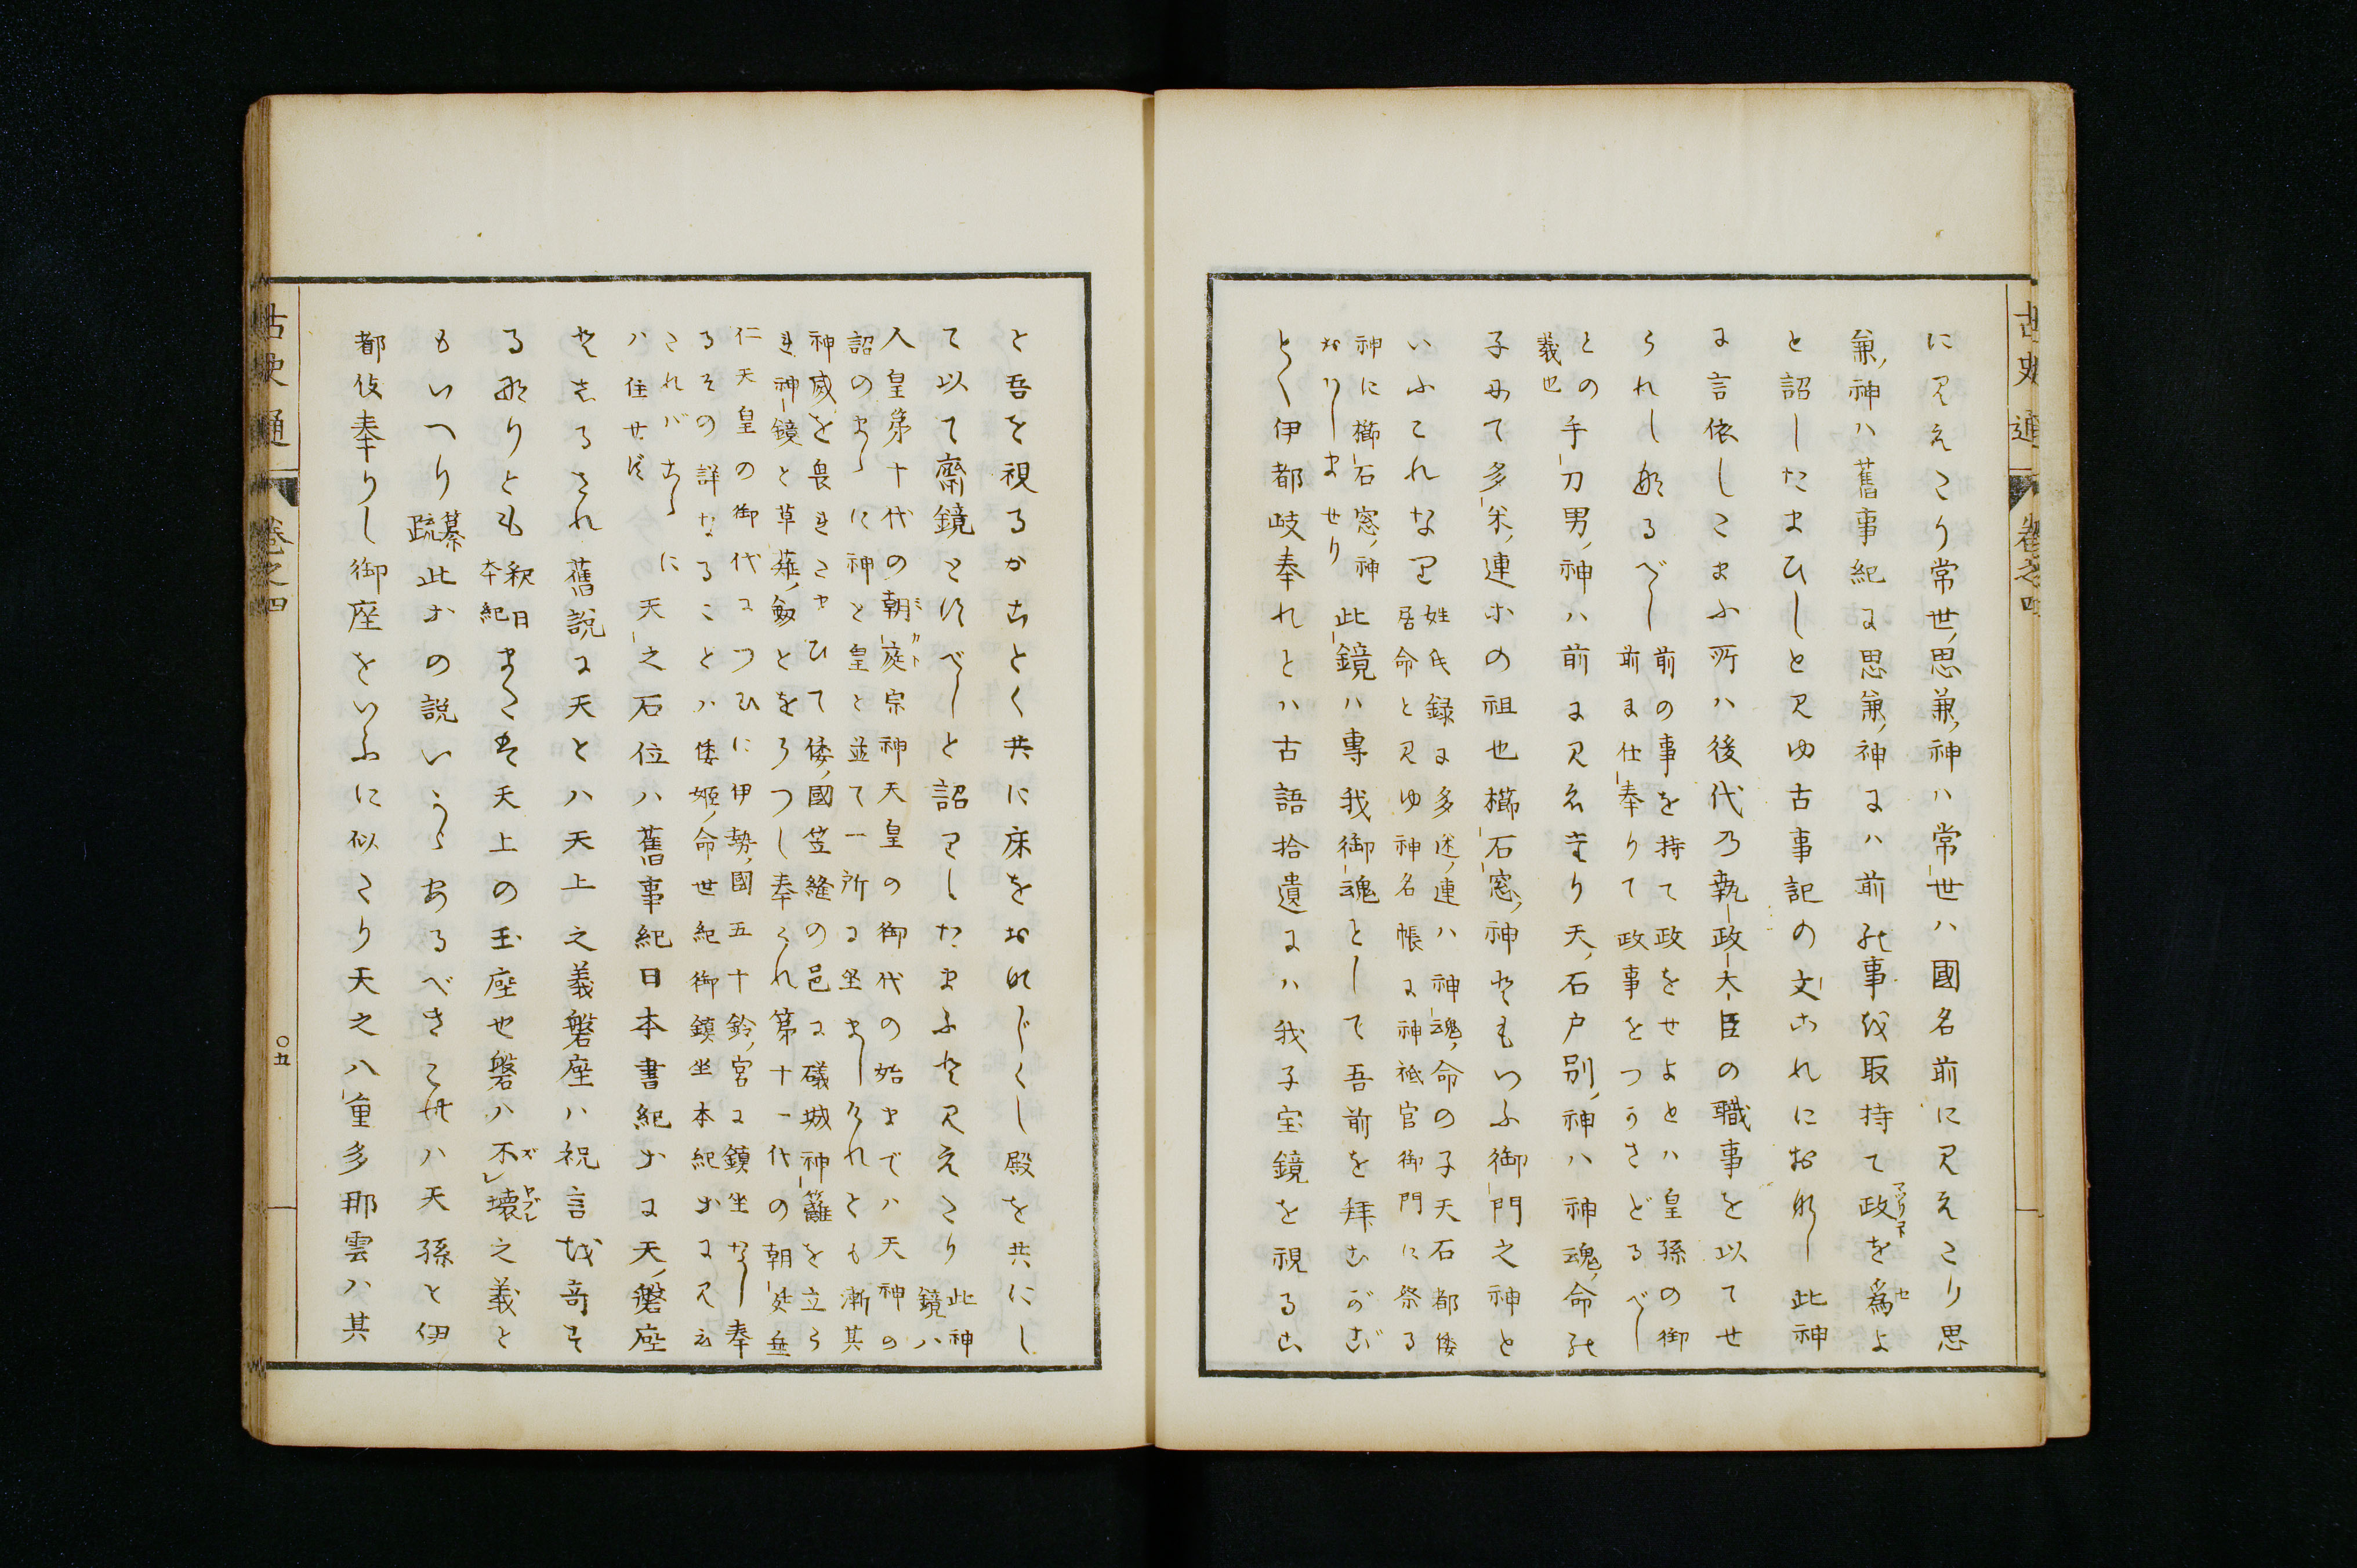 古史通 巻之四
に見えたり常世思兼神ハ常世ハ國名前に見えたり思
兼神ハ舊事紀に思兼神にハ前の事を取持て政を為よ
と詔したまひしと見ゆ古事記の文これにおなし此神
に言依したまふ所ハ後代乃執政大臣の職事を以てせ
られしなるべし
前の事を持て政をせよとハ皇孫の御
前に仕奉りて政事をつかさどるべし
との
義也
手力男神ハ前に見えたり天石戸別神ハ神魂命の
子にて多米連等の祖也櫛石窓神ともいふ御門之神と
いふこれなり
姓氏録に多米連ハ神魂命の子天石都倭
居命と見ゆ神名帳に神祇官御門に祭る
神に櫛石窓神
おハしませり
此鏡ハ專我御魂として吾前を拜むがご
とく伊都岐奉れとハ古語拾遺にハ我子宝鏡を視るこ
と吾を視るがことく共に床をおなじくし殿を共にし
て以て齋鏡とすべしと詔りしたまふと見えたり
此神
鏡ハ
人皇第十代の朝庭崇神天皇の御代の始までハ天神の
詔のまゝに神と皇と並て一所に坐ましけれとも漸其
神威を畏きたまひて倭國笠縫の邑に礒城神籬を立ら
れ神鏡と草薙劔とをうつし奉られ第十一代の朝廷垂
仁天皇の御代につひに伊勢國五十鈴宮に鎮坐なし奉
るその詳なることハ倭姫命世紀御鎮坐本紀等に見え
たればこゝに
ハ住せず
天之石位ハ舊事紀日本書紀等に天磐座
としるされ舊説に天とハ天上之義磐座ハ祝言を寄す
るなりとも
釈日
本紀
または天上の玉座也磐ハ不壊之義と
もいへり
纂
疏
此等の説いかゝあるべきたゝハ天孫と伊
都伎奉りし御座をいふに似たり天之八重多那雲ハ其
古史通 巻之四
〇五